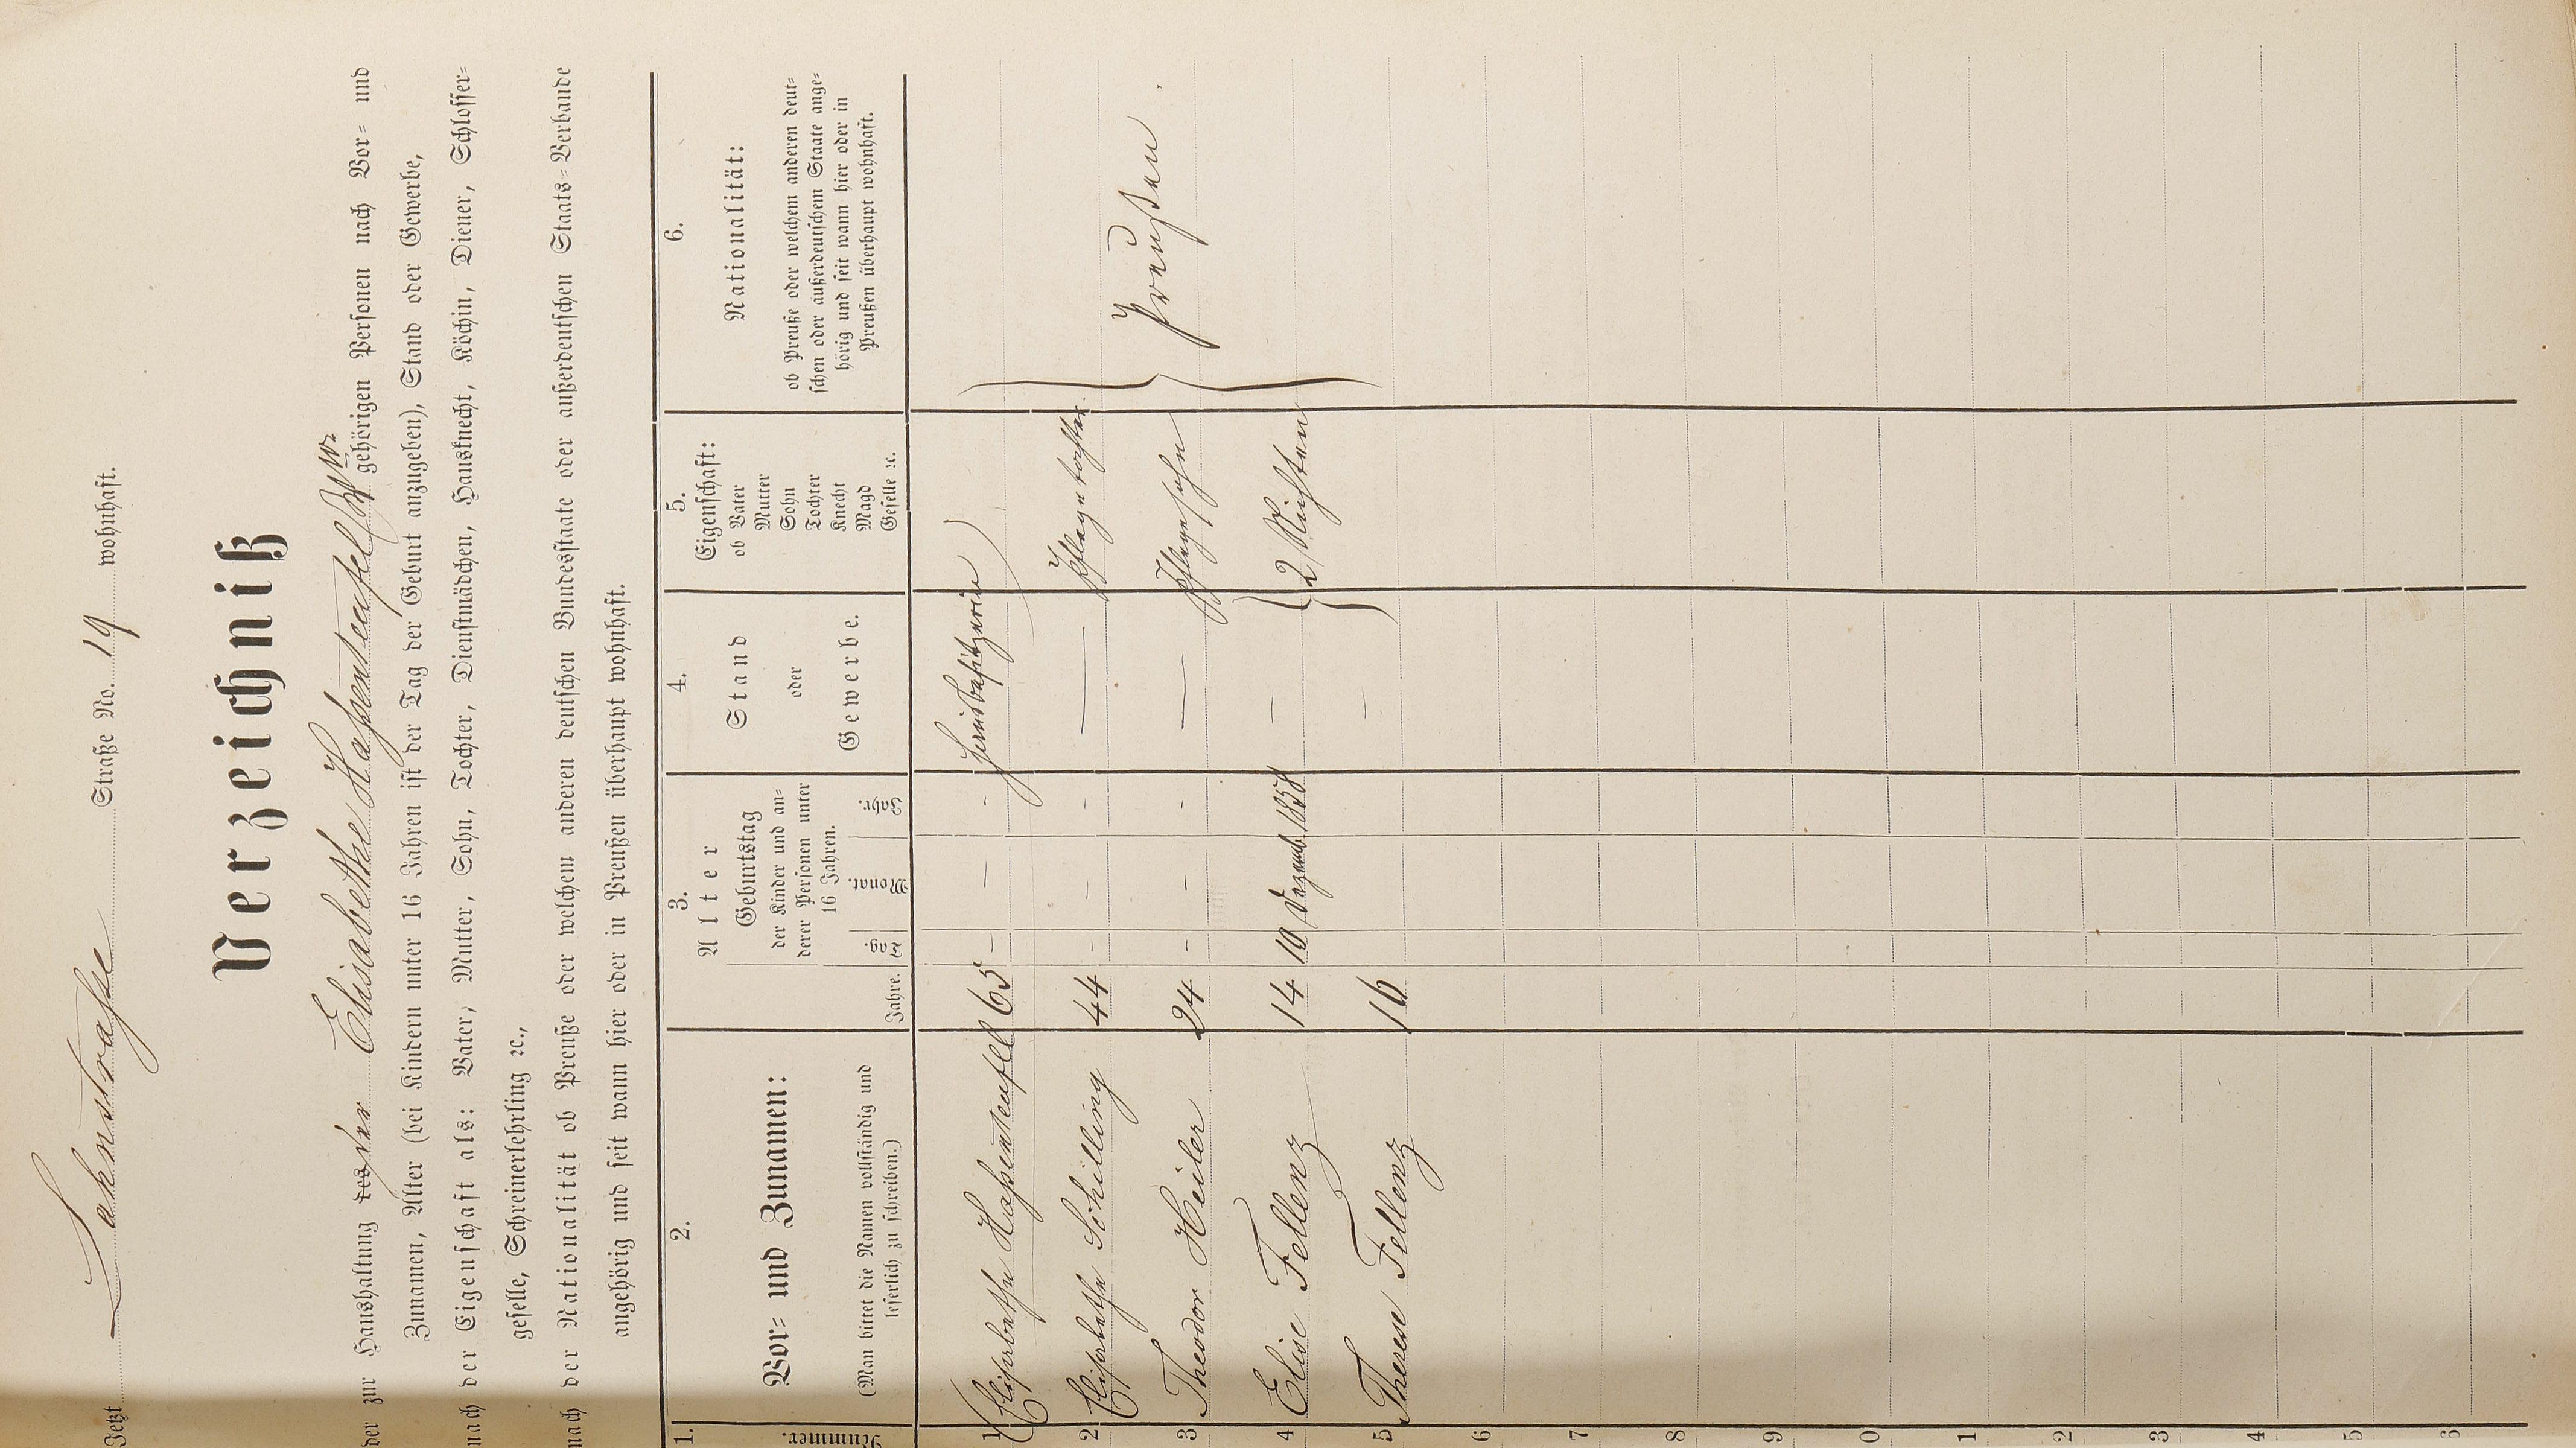 Jetzt Lahnstraße Straße No. 19 wohnhaft.
Verzeichniß
der zur Haushaltung des/der Elisabethe Haßenteufel Ww gehörigen Personen nach Vor- und
Zunamen, Alter (bei Kindern unter 16 Jahren ist der Tag der Geburt anzugeben), Stand oder Gewerbe,
nach der Eigenschaft als: Vater, Mutter, Sohn, Tochter, Dienstmädchen, Hausknecht, Köchin, Diener, Schlosser-
geselle, Schreinerlehrling ꝛc.,
nach der Nationalität ob Preuße oder welchem anderen deutschen Bundesstaate oder außerdeutschen Staats-Verbande
angehörig und seit wann hier oder in Preußen überhaupt wohnhaft.
1. 2. 3. 4. 5. 6.
Nummer.
Vor- und Zunamen:
(Man bittet die Namen vollständig und
leserlich zu schreiben.)
Alter
Jahre.
Geburtstag
der Kinder und an-
derer Personen unter
16 Jahren.
Tag. Monat. Jahr.
Stand
oder
Gewerbe.
Eigenschaft:
ob Vater
Mutter
Sohn
Tochter
Knecht
Magd
Geselle ꝛc.
Nationalität:
ob Preuße oder welchem anderen deut-
schen oder außerdeutschem Staate ange-
hörig und seit wann hier oder in
Preußen überhaupt wohnhaft.
1 Elisabethe Haßenteufel 65 - - - Hausbesitzerin
2 Elisabethe Schilling 44 - - - — Pflegetochter
3 Theodor Heiler 24 - - - — Pflegesohn Preußen
4 Elise Fellenz 14 10 Dezemb. 1858 — 2 Nichten
5 Therese Fellenz 16 —
6
7
8
9
0
1
2
3
4
5
6